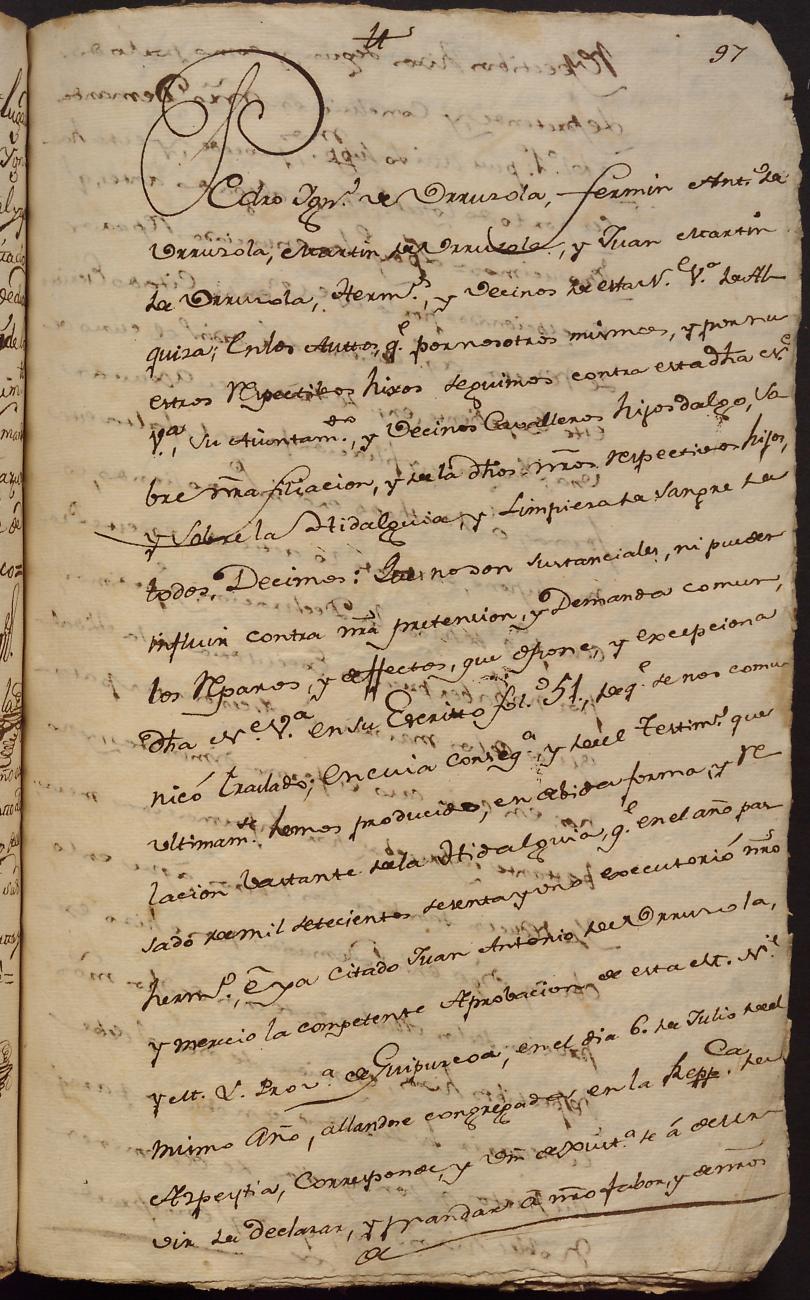 97
Pedro Ygn.º de Urruzola, fermin Ant.º de
Urruzola, Martin de Urruzola, y Juan Martin
de Urruzola, Herm.ˢ, y Vecinos de esta N.ᵉ V.ª de Al
quiza; En los Auttos, q.ᵉ por nosotros mismos, y por nu
estros Respectibos hixos seguimos contra esta dha N.ᵉ
V.ª, su Aiuntam.ᵗᵒ, y Vecinos Cavalleros hijosdalgo, so
bre nr̃a filiacion, y de la dhos nr̃os respectivos hijos,
y sobre la Hidalguia, y Limpieza de Sangre de
todos, Decimos: Que no son sustanciales, ni pueden
influir contra nr̃a pretencion, y Demanda comun,
los Reparos, y deffectos, que opone, y excepciona
dha N.ᵉ V.ª en su Escritto fol.º 51, de q.ᵉ se nos comu
nicó traslado; En cuia conseq.ª, y de el Testim.º que
ultimam.ᵗᵉ hemos producido, en debida forma, y Re
lacion vastante de la Hidalguia, q.ᵉ en el año pas
sado de mil setecientos sesenta y uno executorió nr̃o
herm.º, el ya citado Juan Antonio de Urruzola,
y merecio la competente Aprobacion de esta M. N.ˡᵉ
y M. L. Prov.ª de Guipuzcoa, en el dia 6. de Julio de el
mismo Año, allandose congregada en la Repp.ᶜᵃ de
Azpeytia, Corresponde, y Vm̃ de Justt.ª se á de ser
vir de declarar, y mandar á nr̃o fabor, y de nr̃os